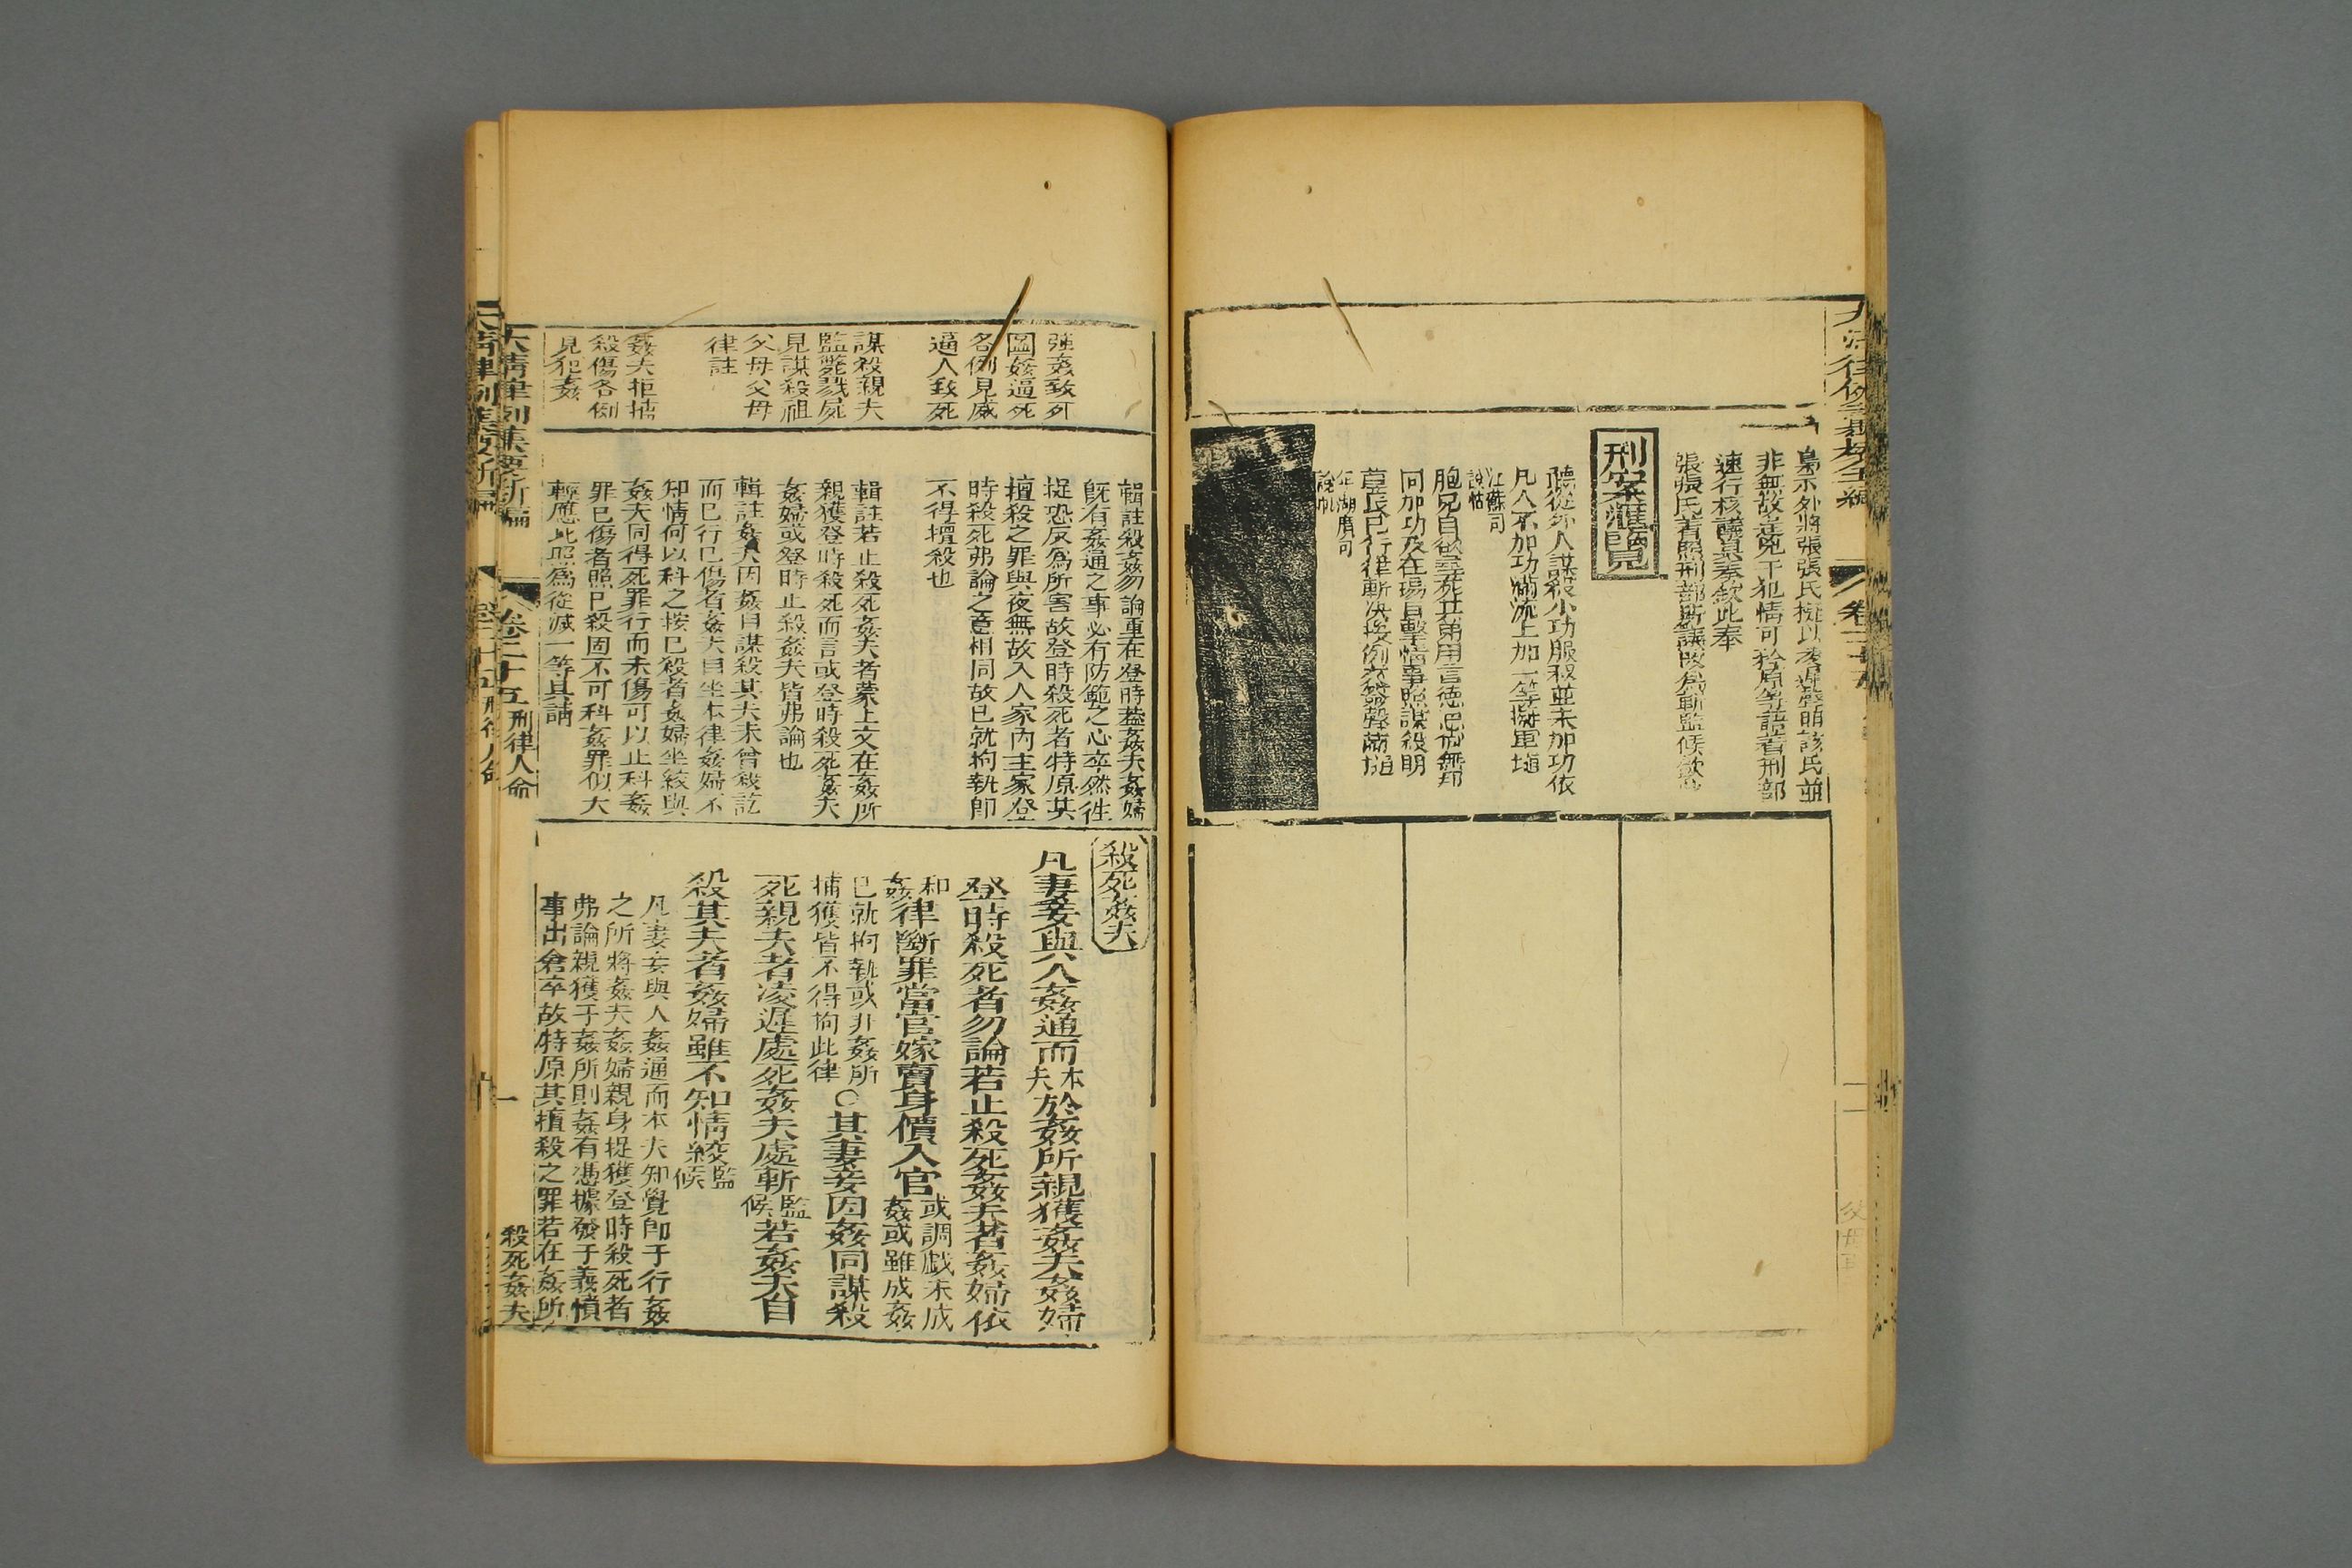 梟示外將張張氏擬以凌遲聲明該氏並
非無故逞兇干犯情可矜原等語著刑部
速行核議具奏欽此奉
張張氏著照刑部所議改為斬監候欽此
刑案滙覽
聽從外人謀殺小功服叔並未加功依
凡人不加功滿流上加一等擬軍
江蘇司
說帖
胞兄自欲尋死其弟用言慫恿並無
同加功及在場自擊情事照謀殺期
尊長已行律斬決援例
說帖
強姦致死
圖姦逼死
各例見威
逼人致死
謀殺親夫
監斃戮屍
見謀殺祖
父母父母
律註
姦夫拒捕
殺傷各例
見犯姦
輯註殺姦勿論重在登時蓋姦夫姦婦
既有姦通之事必有防範之心卒然往
捉恐反為所害故登時殺死者特原其
擅殺之罪與夜無故入人家內主家登
時殺死弗論之意相同故已就拘執即
不得擅殺也
輯註若止殺死姦夫者蒙上文在姦所
親獲登時殺死而言或登時殺死姦夫
姦婦或登時止殺姦夫皆弗論也
輯註姦夫因姦自謀殺其夫未曾殺訖
而已行已傷者姦夫自坐本律姦婦不
知情何以科之按已殺者姦婦坐絞與
姦夫同得死罪行而未傷可以止科姦
罪已傷者照已殺固不可科姦罪似太
輕應比照為從減一等具請
殺死姦夫
凡妻妾與人姦通而本夫於姦所親獲姦夫姦婦
登時殺死者勿論若止殺死姦夫者姦婦依
和姦律斷罪當官嫁賣身價入官或調戲未成姦或雖成姦
已就拘執或非姦所捕獲皆不得拘此律○其妻妾因姦同謀殺
死親夫者凌遲處死姦夫處斬監候若姦夫自
殺其夫者姦婦雖不知情絞監候
凡妻妾與人姦通而本夫知覺即于行姦
之所將姦夫姦婦親身捉獲登時殺死者
弗論親獲于姦所則姦有憑據發于義憤
事出倉卒故特原其擅殺之罪若在姦所
大清律例集要新編
卷二十五
刑律人命
殺死姦夫